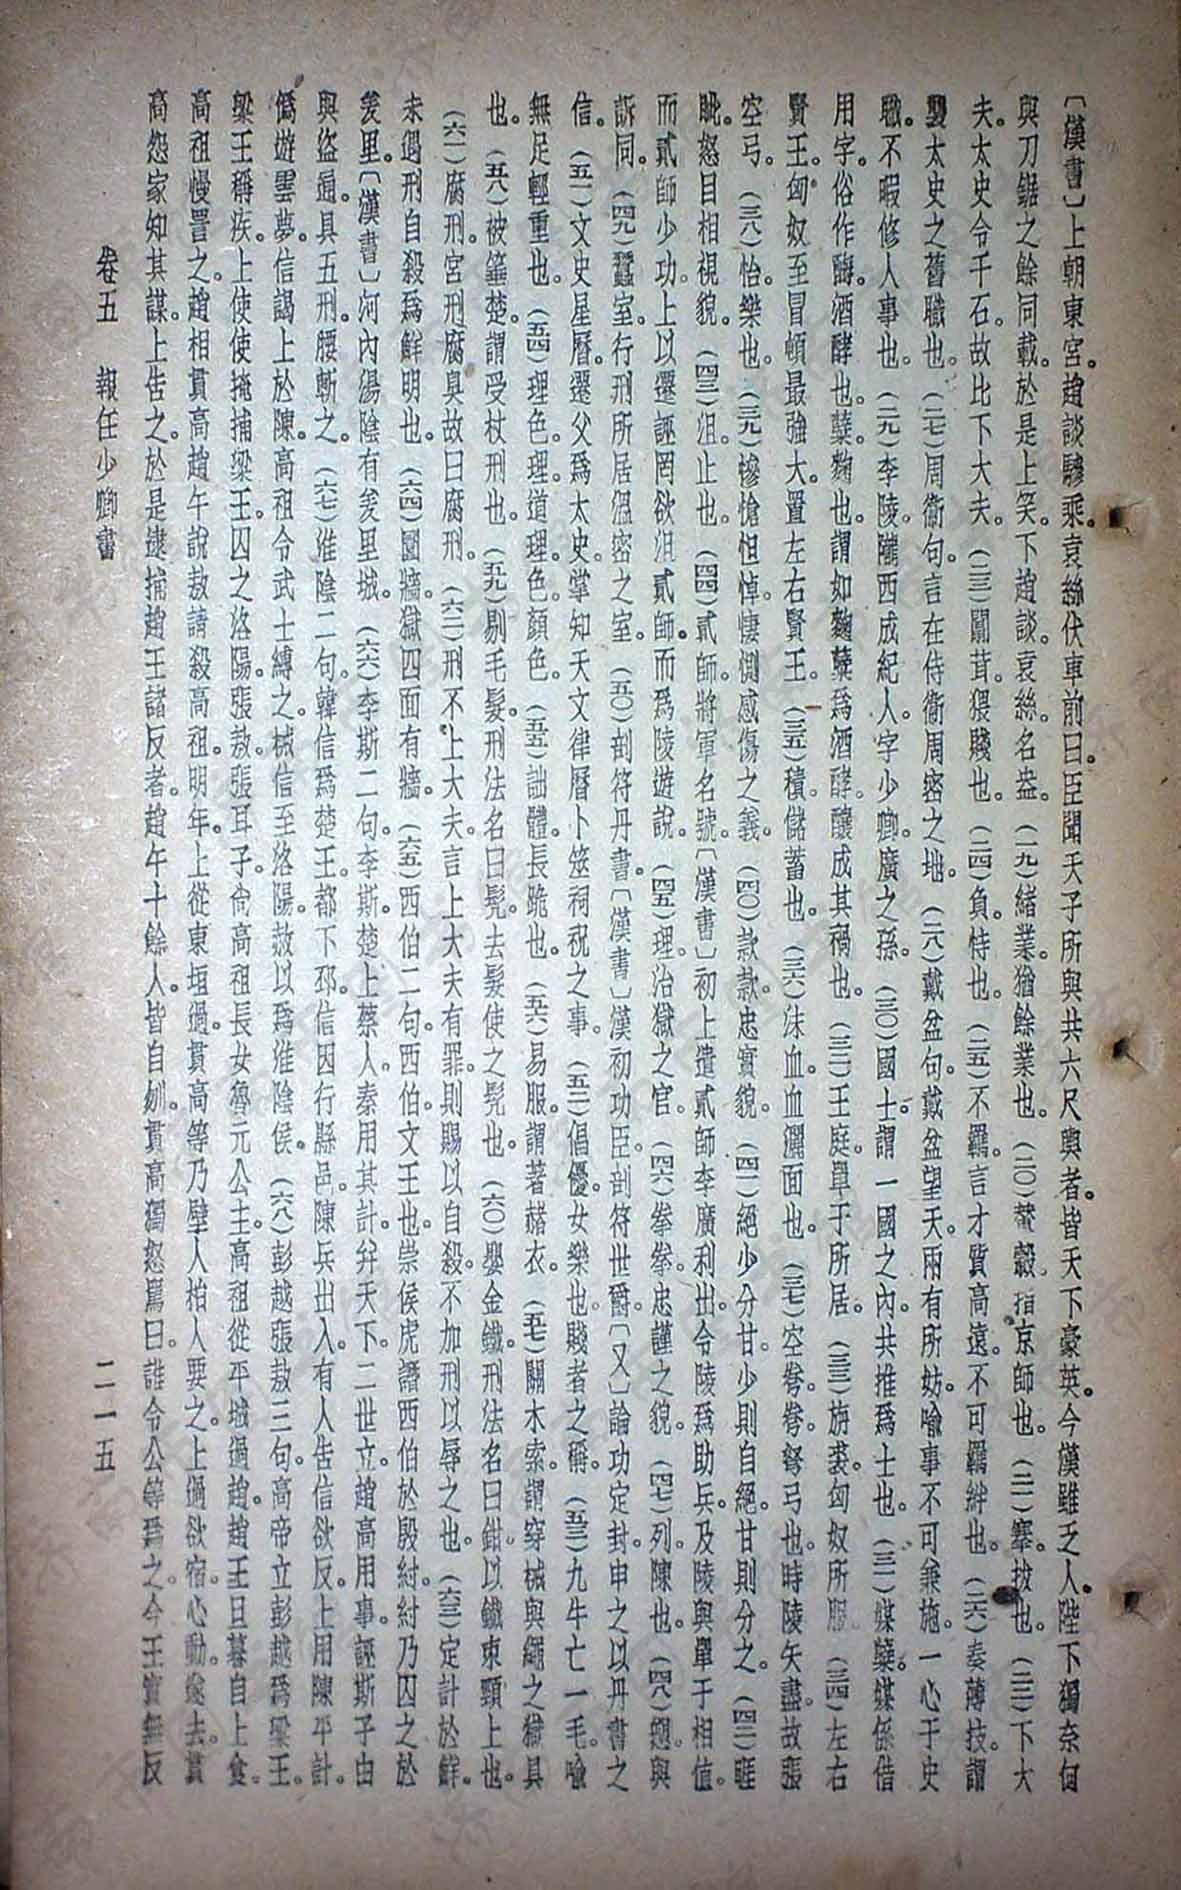 〔漢書〕上朝東宮。趙談驂乘。袁絲伏車前曰。臣聞天子所與共六尺輿者。皆天下豪英。今漢雖乏人。陛下獨奈何
與刀鋸之餘同載。於是上笑。下趙談。袁絲。名盎。（一九）緒業。猶餘業也。（二〇）輦轂。指京師也。（二一）搴。拔也。（二二）下大
夫。太史令千石。故比下大夫。（二三）闒茸。猥賤也。（二四）負。恃也。（二五）不羈。言才質高遠。不可羈絆也。（二六）奏薄技。謂
襲太史之舊職也。（二七）周衞句。言在侍衞周密之地。（二八）戴盆句。戴盆望天。兩有所妨。喻事不可兼施。一心于史
職。不暇修人事也。（二九）李陵。隴西成紀人。字少卿。廣之孫。（三〇）國士。謂一國之內。共推爲士也。（三一）媒櫱。媒係借
用字。俗作酶。酒酵也。櫱。麴也。謂如麴櫱爲酒酵。釀成其禍也。（三二）王庭。單于所居。（三三）旃裘。匈奴所服。（三四）左右
賢王。匈奴至冒頓最強大。置左右賢王。（三五）積。儲蓄也。（三六）沬血。血灑面也。（三七）空弮。弮。弩弓也。時陵矢盡。故張
空弓。（三八）怡。樂也。（三九）慘愴怛悼。悽惻感傷之義。（四〇）款款。忠實貌。（四一）絕少分甘。少則自絕。甘則分之。（四二）睚
眦。怒目相視貌。（四三）沮。止也。（四四）貳師。將軍名號。〔漢書〕初上遣貳師李廣利出。令陵爲助兵。及陵與單于相值。
而貳師少功。上以遷誣罔。欲沮貳師。而爲陵遊說。（四五）理。治獄之官。（四六）拳拳。忠謹之貌。（四七）列。陳也。（四八）愬。與
訴同。（四九）蠶室。行刑所居溫密之室。（五〇）剖符丹書。〔漢書〕漢初功臣。剖符世爵。〔又〕論功定封。申之以丹書之
信。（五一）文史星曆。遷父爲太史。掌知天文律曆卜筮祠祝之事。（五二）倡優。女樂也。賤者之稱。（五三）九牛亡一毛。喻
無足輕重也。（五四）理色。理。道理。色。顏色。（五五）詘體。長跪也。（五六）易服。謂著赭衣。（五七）關木索。謂穿械與繩之獄具
也。（五八）被箠楚。謂受杖刑也。（五九）剔毛髮。刑法名曰髡。去髮使之髡也。（六〇）嬰金鐵。刑法名曰鉗。以鐵束頸上也。
（六一）腐刑。宮刑腐臭。故曰腐刑。（六二）刑不上大夫。言上大夫有罪。則賜以自殺。不加刑以辱之也。（六三）定計於鮮。
未遇刑自殺爲鮮明也。（六四）圜牆。獄四面有牆。（六五）西伯二句。西伯。文王也。崇侯虎譖西伯於殷紂。紂乃囚之於
羑里。〔漢書〕河內湯陰有羑里城。（六六）李斯二句。李斯。楚上蔡人。秦用其計。幷天下。二世立。趙高用事。誣斯子由
與盜通。具五刑。腰斬之。（六七）淮陰二句。韓信爲楚王。都下邳。信因行縣邑。陳兵出入。有人告信欲反。上用陳平計。
僞遊雲夢。信謁上於陳。高祖令武士縛之。械信至洛陽。赦以爲淮陰侯。（六八）彭越張敖三句。高帝立彭越爲梁王。
梁王稱疾。上使使掩捕梁王。囚之洛陽。張敖。張耳子。尙高祖長女魯元公主。高祖從平城過趙。趙王旦暮自上食。
高祖慢詈之。趙相貫高趙午說敖請殺高祖。明年。上從東垣過。貫高等乃壁人柏人要之。上過欲宿。心動。遂去。貫
高怨家知其謀。上告之。於是逮捕趙王諸反者。趙午十餘人。皆自刎。貫高獨怒罵曰。誰令公等爲之。今王實無反
卷五　報任少卿書　二一五